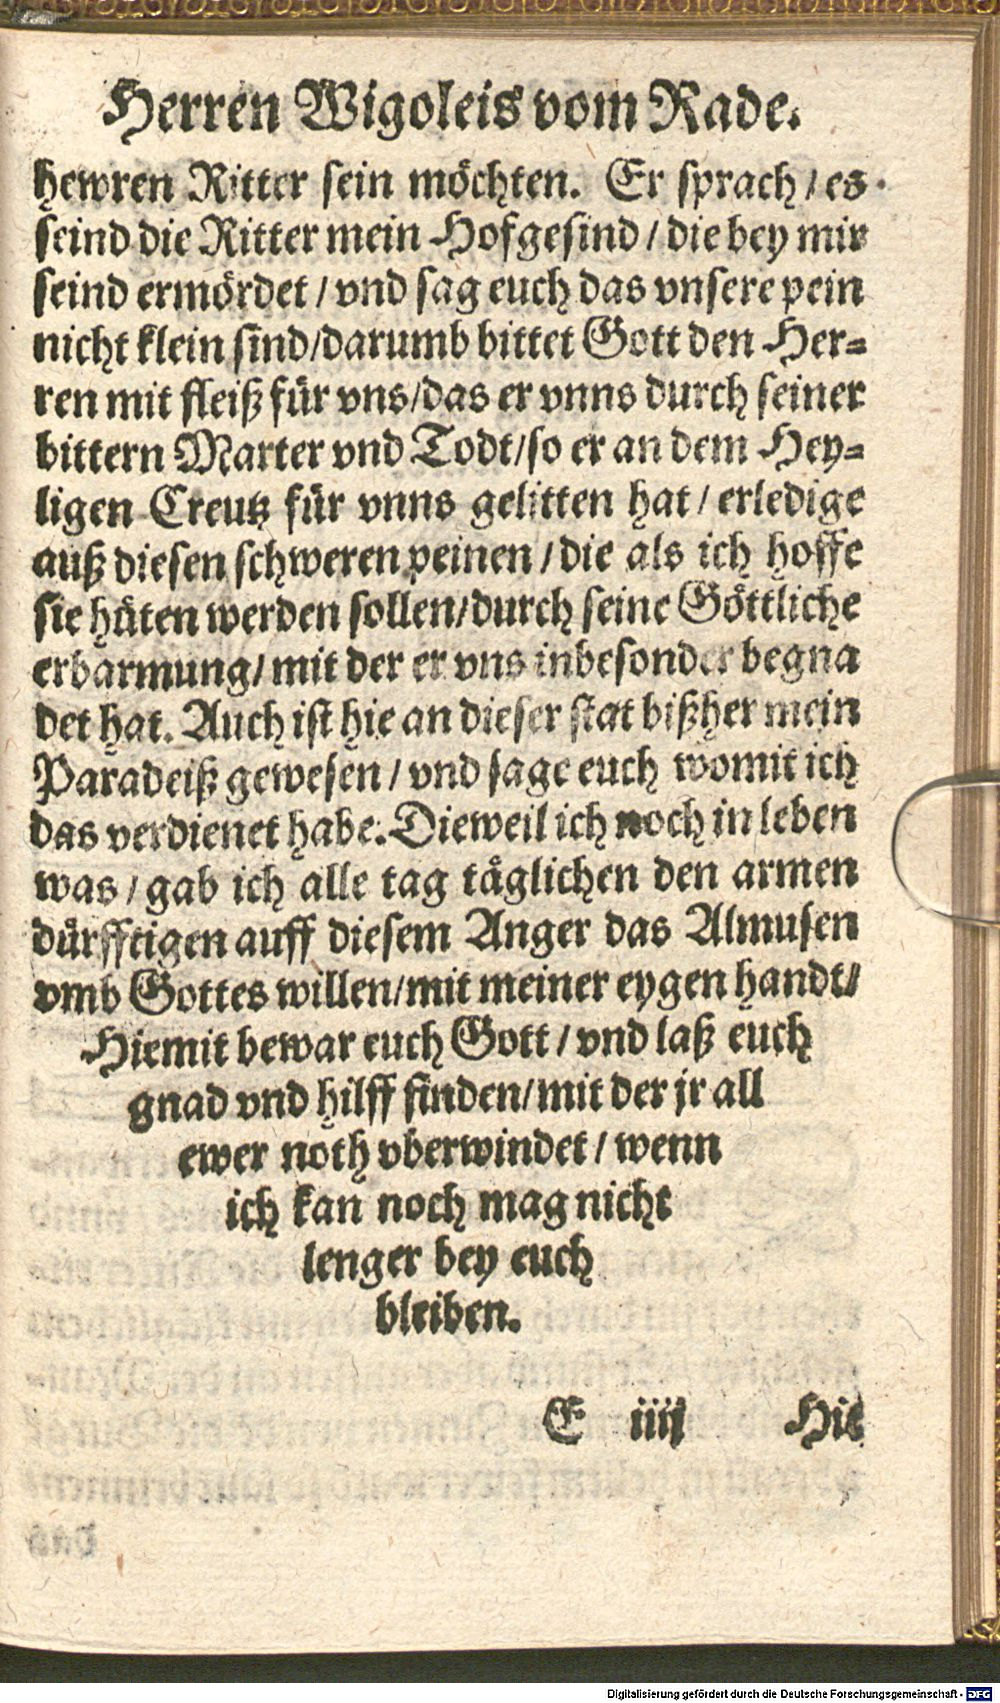 Herren Wigoleis vom Rade.
hewren Ritter sein möchten. Er sprach / es
seind die Ritter mein Hofgesind / die bey mir
seind ermördet / vnd sag euch das vnsere pein
nicht klein sind/darumb bittet Gott den Her-
ren mit fleiß für vns/das er vnns durch seiner
bittern Marter vnd Todt/so er an dem Hey-
ligen Creutz für vnns gelitten hat / erledige
auß diesen schweren peinen / die als ich hoffe
sie hüten werden sollen/durch seine Göttliche
erbarmung/ mit der er vns inbesonder begna
det hat. Auch ist hie an dieser stat bißher mein
Paradeiß gewesen / vnd sage euch womit ich
das verdienet habe. Dieweil ich noch in leben
was / gab ich alle tag täglichen den armen
dürfftigen auff diesem Anger das Almusen
vmb Gottes willen/mit meiner eygen handt/
Hiemit bewar euch Gott / vnd laß euch
gnad vnd hilff finden/mit der jr all
ewer noth vberwindet / wenn
ich kan noch mag nicht
lenger bey euch
bleiben.
E iiij His
Digitalisierung gefördert durch die Deutsche Forschungsgemeinschaft - DFG